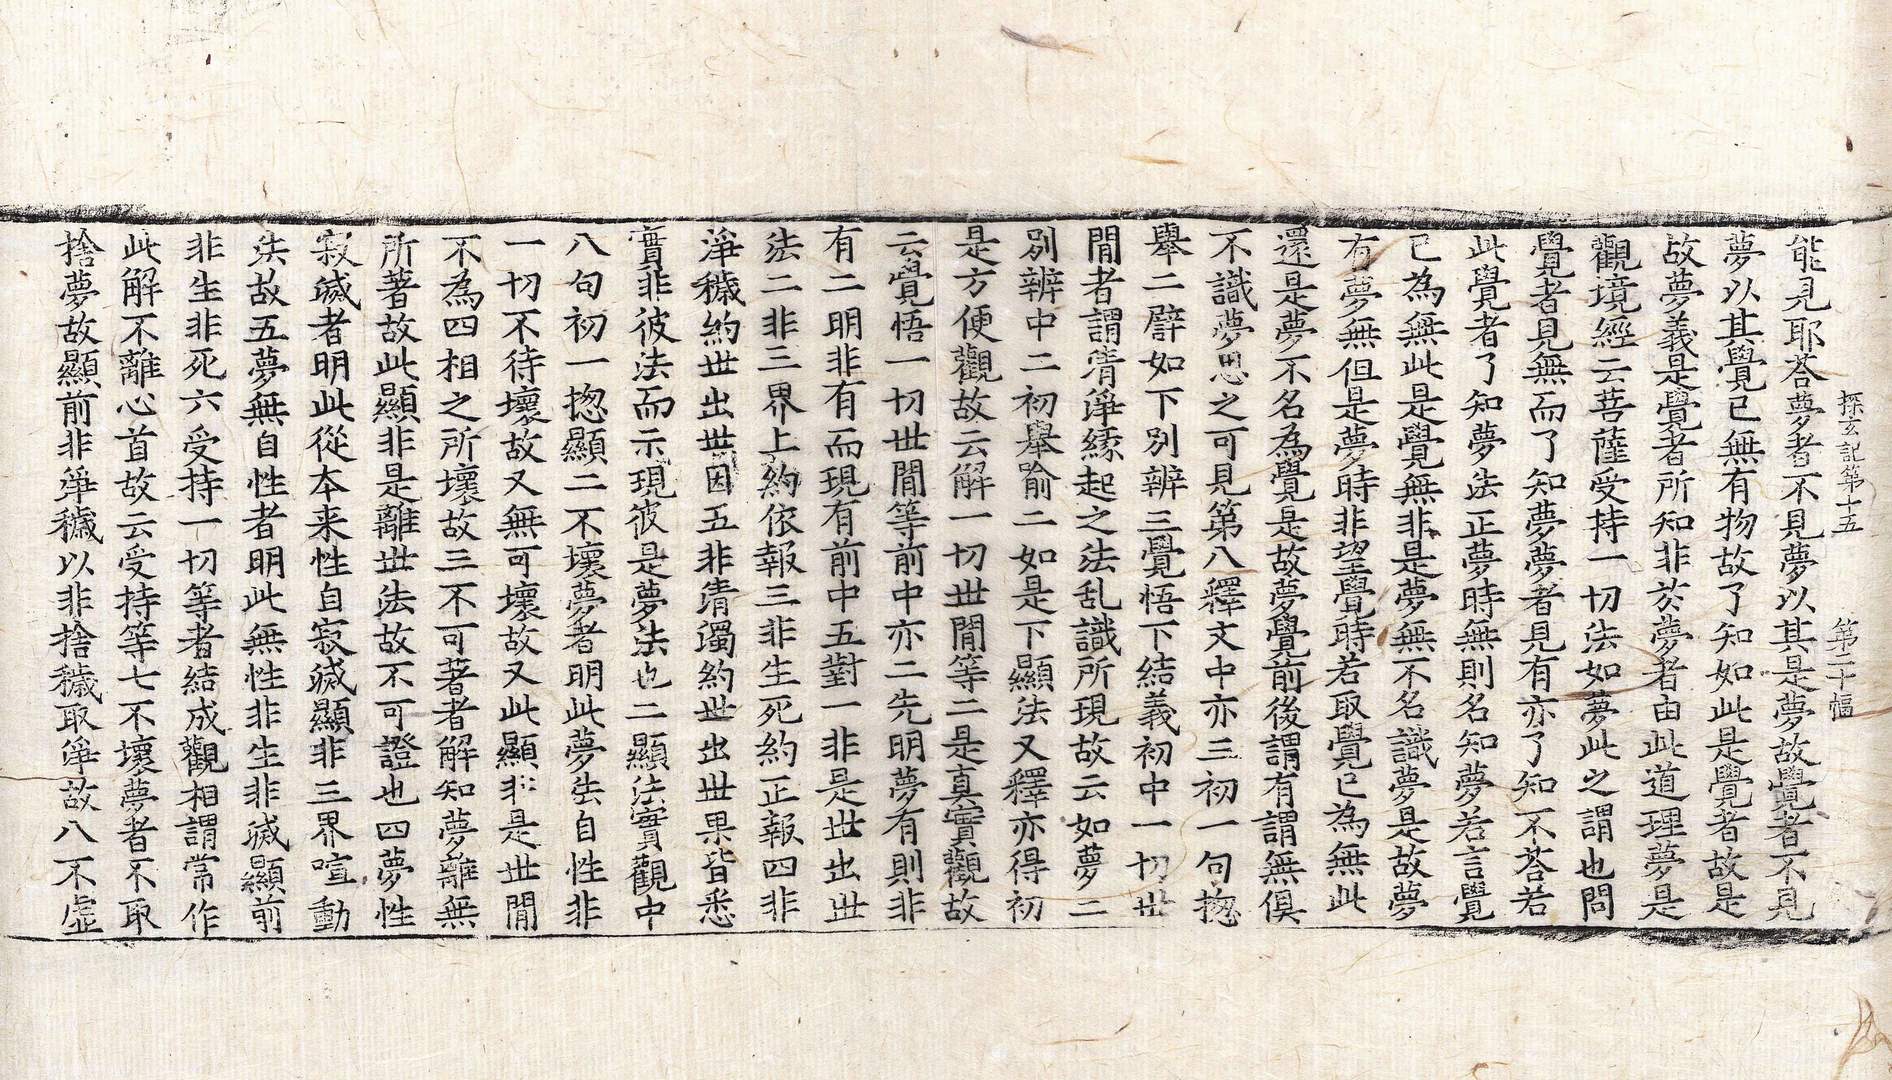 探玄記第十五　第二十幅
能見耶荅夢者不見夢以其是夢故覺者不見
夢以其覺已無有物故了知如此是覺者故是
故夢義是覺者所知非於夢者由此道理夢是
觀境經云菩薩受持一切法如夢此之謂也問
覺者見無而了知夢夢者見有亦了知不荅若
此覺者了知夢法正夢時無則名知夢若言覺
已為無此是覺無非是夢無不名識夢是故夢
有夢無但是夢時非望覺時若取覺已為無此
還是夢不名為覺是故夢覺前後謂有謂無俱
不識夢思之可見第八釋文中亦三初一句揔
舉二譬如下別辨三覺悟下結義初中一切世
閒者謂清淨緣起之法乱識所現故云如夢二
別辨中二初舉喻二如是下顯法又釋亦得初
是方便觀故云解一切世閒等二是真實觀故
云覺悟一切世閒等前中亦二先明夢有則非
有二明非有而現有前中五對一非是世出世
法二非三界上約依報三非生死約正報四非
淨穢約世出世因五非清濁約世出世果皆悉
實非彼法而示現彼是夢法也二顯法實觀中
八句初一揔顯二不壞夢者明此夢法自性非
一切不待壞故又無可壞故又此顯非是世閒
不為四相之所壞故三不可著者解知夢離無
所著故此顯非是離世法故不可證也四夢性
寂滅者明此從本来性自寂滅顯非三界喧動
法故五夢無自性者明此無性非生非滅顯前
非生非死六受持一切等者結成觀相謂常作
此解不離心首故云受持等七不壞夢者不取
捨夢故顯前非淨穢以非捨穢取淨故八不虛